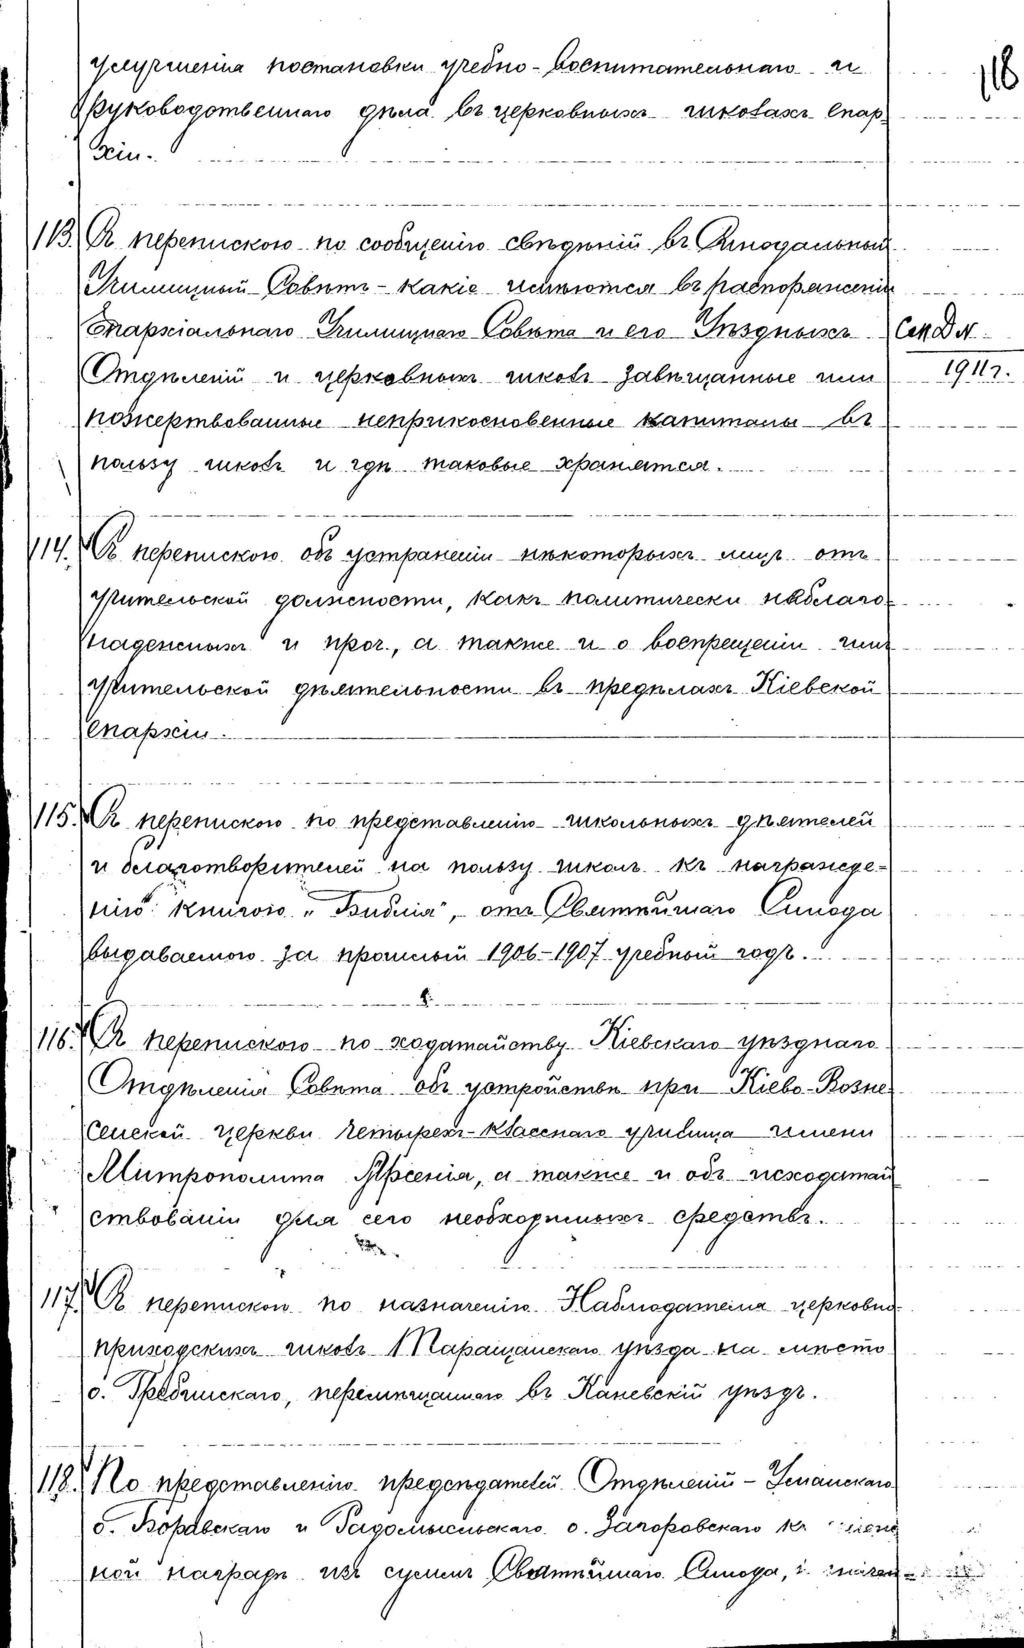 улучшенія постановки учебно-воспитательнаго и
руководственнаго дѣла въ церковныхъ школахъ епар
хіи.
118
113. Съ перепискою по сообщенію свѣдѣній въ Синодальный
Училищный Совѣтъ - какіе имѣются въ распоряженіи
Епархіальнаго Училищнаго Совѣта и его Уѣздныхъ
Отдѣленій и церковныхъ школъ завѣщанные или
пожертвованные неприкосновенные капиталы въ
пользу школъ и гдѣ таковые хранятся.
1911г.
114. Съ перепискою объ устраненіи нѣкоторыхъ лицъ отъ
учительской должности, какъ политически неблаго-
надежныхъ и проч., а также и о воспрещеніи имъ
учительской дѣятельности въ предѣлахъ Кіевской
епархіи.
115. Съ перепискою по представленію школьныхъ дѣятелей
и благотворителей на пользу школъ къ награжде-
нію книгою „Библія", отъ Святѣйшаго Синода
выдаваемою за прошлый 1906-1907 учебный годъ.
116. Съ перепискою по ходатайству Кіевскаго уѣзднаго
Отдѣленія Совѣта объ устройствѣ при Кіево-Возне
сенской церкви четырехъ-класснаго училища имени
Митрополита Арсенія, а также и объ исходатай
ствованіи для сего необходимыхъ средствъ.
117. Съ перепискои по назначенію Наблюдателя церковно-
приходскихъ школъ Таращанскаго уѣзда на мѣсто
о. Гребинскаго, перемѣщеннаго въ Каневскій уѣздъ.
118. По представленію предсѣдателей Отдѣленій - Уманскаго
о. Боровскаго и Радомысльскаго о. Загоровскаго къ
ной наградѣ изъ суммъ Святѣйшаго Синода,